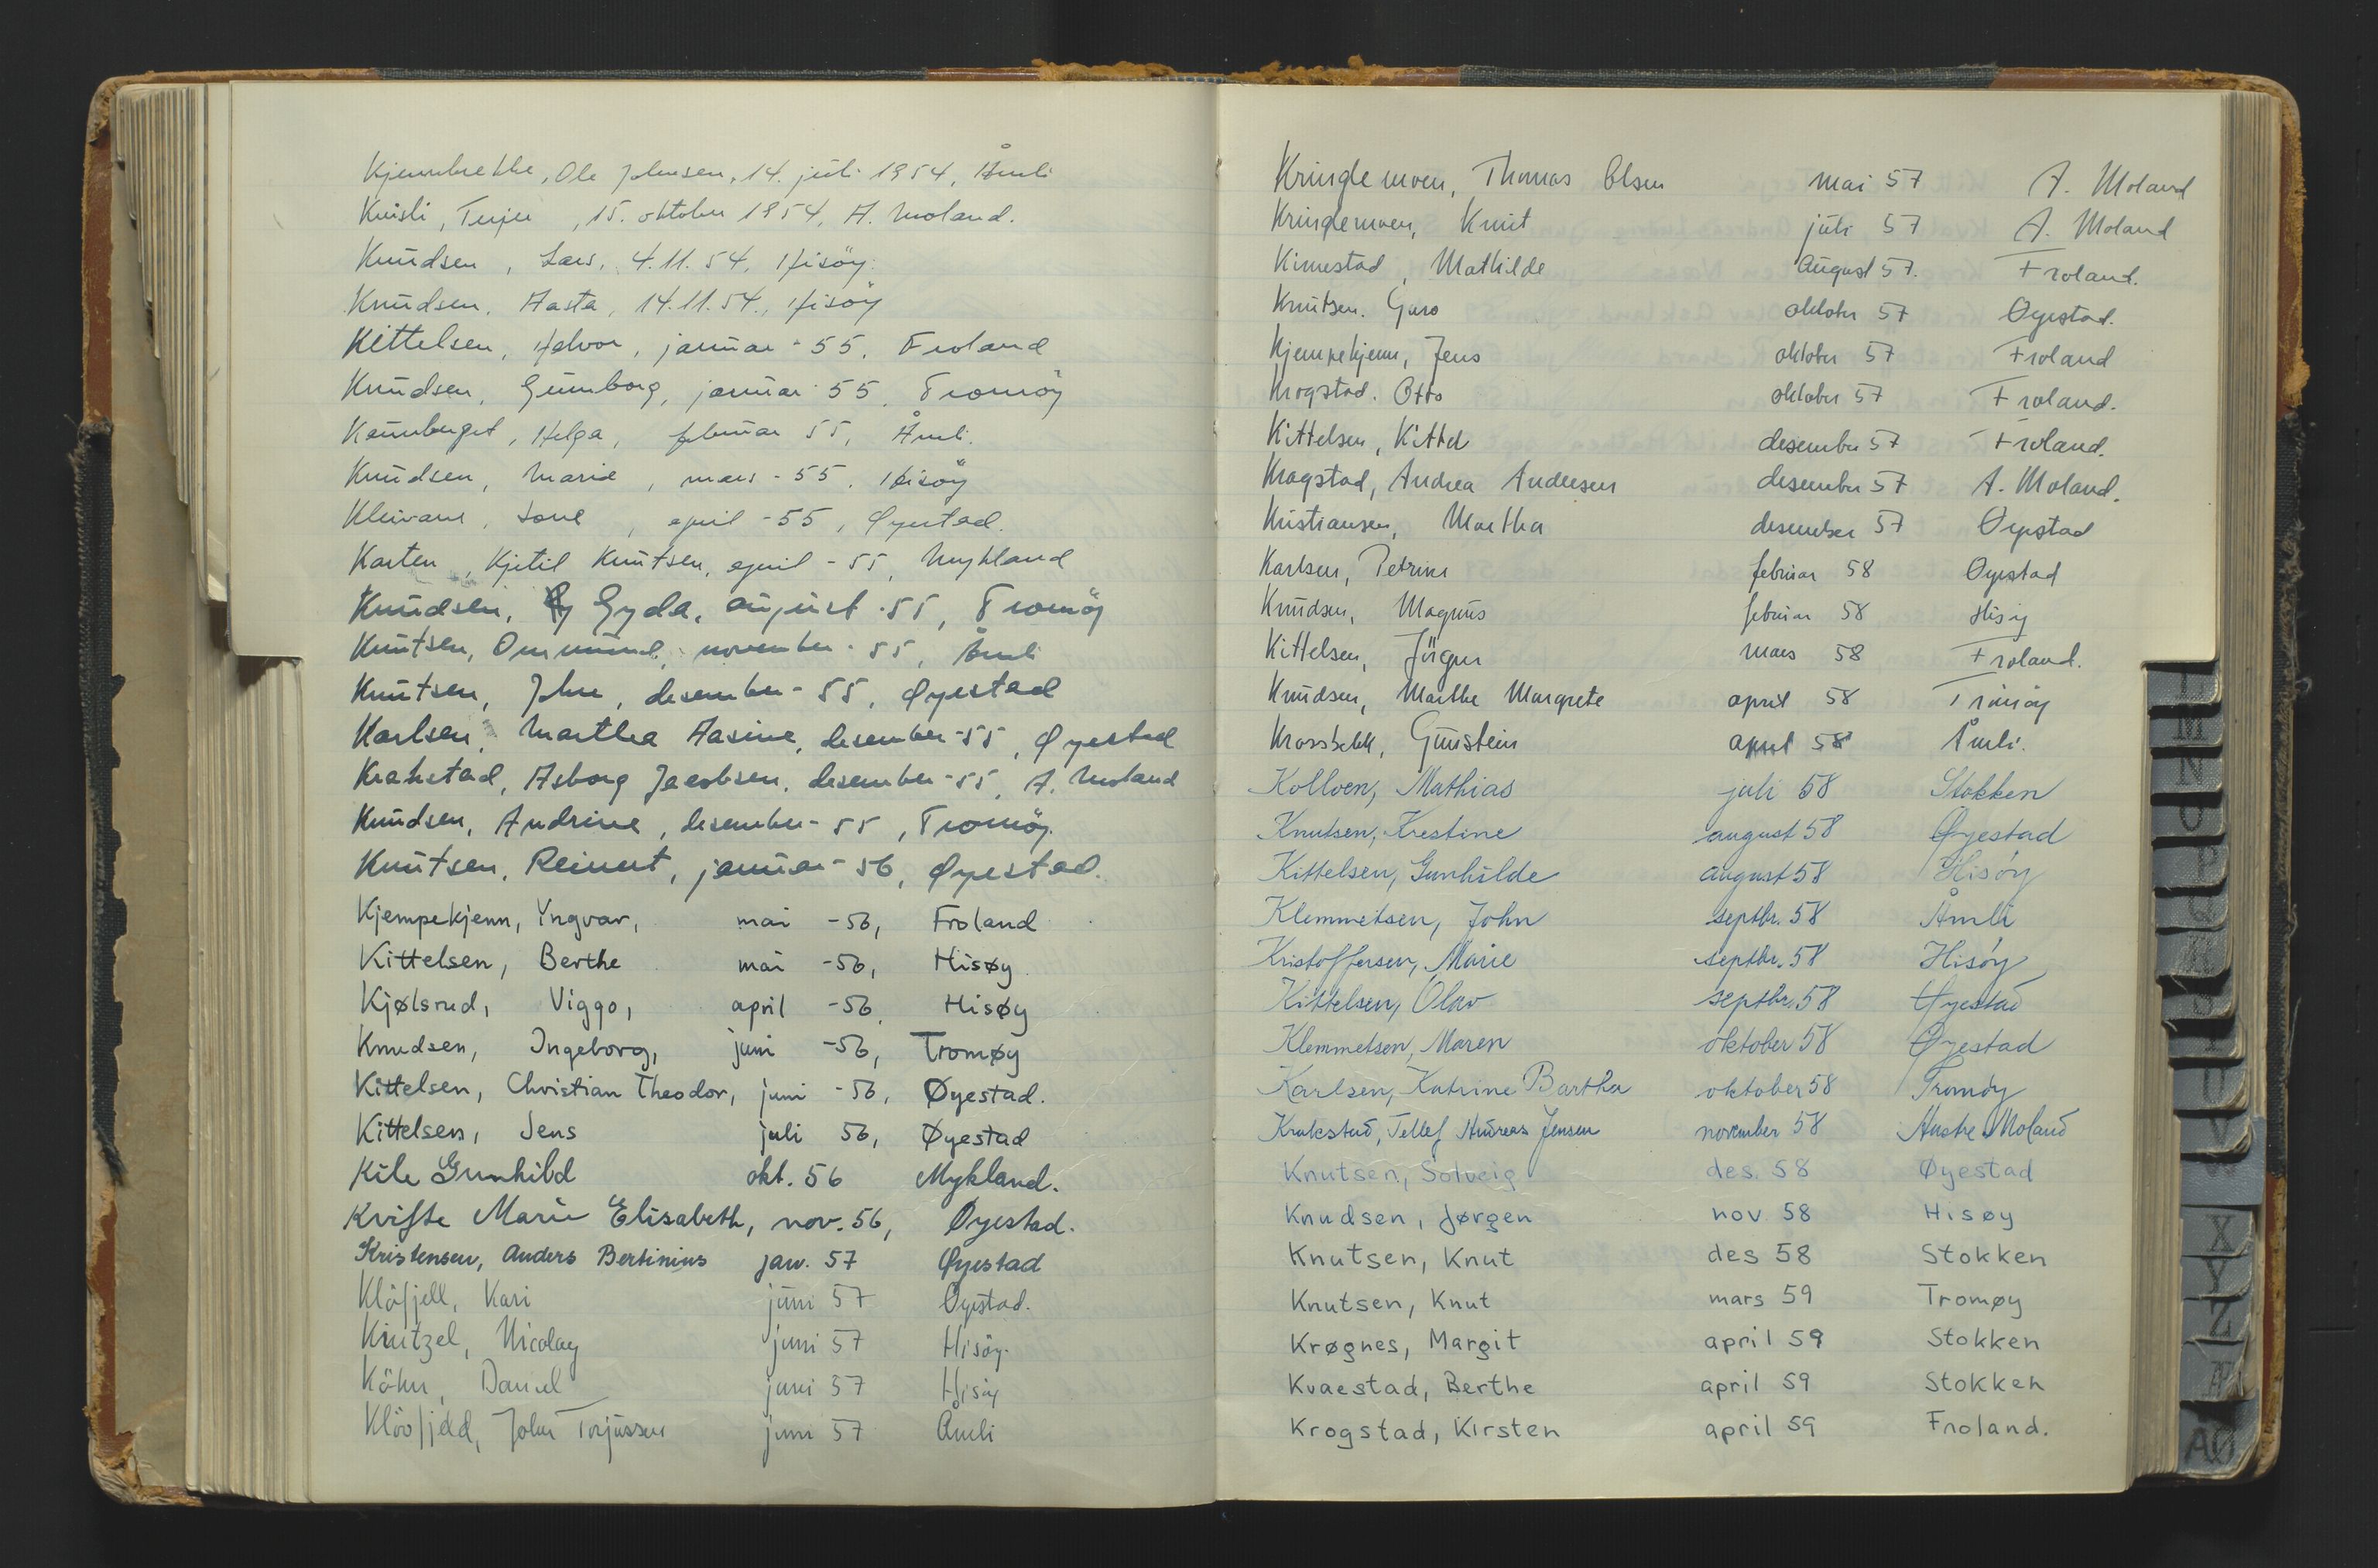 Kjennbekke, Ole Johnsen, 14. juli 1954, Åmli
Knisli, Terjer, 15. oktober 1954, A. Moland.
Knudsen, Lars, 4.11.54, Hisöy.
Knudsen, Aasta, 14.11.54., Hisöy
Kittelsen, Halvor, januar - 55, Froland
Knudsen, Gunnborg, januar 55, Tromöy
Kannberget, Helga, februar 55, Åmli.
Knudsen, Marie, mars - 55, Hisöy
Kleivane, Lone, april - 55, Øyestad.
Karten, Kjetil Knutsen, april - 55, Mykland
Knudsen, Gyda, august - 55, Tromöy
Knutsen, Ommund, november - 55, Åmli
Knutsen, John, desember - 55, Øyestad
Karlsen, Marthea Aasine, desember - 55, Øyestad
Krakstad, Asborg Jacobsen, desember - 55, A. Moland
Knudsen, Andrine, desember - 55, Tromöy.
Knutsen, Reinert, januar - 56, Øyestad.
Kjempekjenn, Yngvar, mai - 56, Froland
Kittelsen, Berthe mai - 56, Hisøy
Kjølsrud, Viggo, april - 56, Hisøy
Knudsen, Ingeborg, juni - 56, Tromøy
Kittelsen, Christian Theodor, juni - 56, Øyestad.
Kittelsen, Jens juli 56, Øyestad
Kile Gunhild okt. 56 Mykland.
Kvifte Marie Elisabeth, nov. 56, Øyestad.
Kristensen, Anders Bertinius jan. 57 Øyestad
Klöfjell, Kari juni 57 Öyestad.
Kintzel, Nicolay juni 57 Hisöy.
Köhn, Daniel juni 57 Hisöy
Klövfjell, John Torjussen juni 57 Åmli
Kringlemoen, Thomas Olsen mai 57 A. Moland
Kringlemoen, Knut juli 57 A. Moland
Kimestad, Mathilde August 57. Froland.
Knutsen. Guro oktober 57 Öyestad.
Kjempekjenn, Jens oktober 57 Froland
Krogstad. Otto oktober 57 Froland.
Kittelsen, Kittel desember 57 Froland.
Kragstad, Andrea Andersen desember 57 A. Moland.
Kristiansen, Martha desember 57 Öyestad
Karlsen, Petrine februar 58 Öyestad
Knudsen, Magnus februar 58 Hisöy
Kittelsen, Jörgen mars 58 Froland.
Knudsen, Marthe Margrete april 58 Tromöy
Krossbekk, Gunstein april 58 Åmli.
Kolloen, Mathias juli 58 Stokken
Knutsen, Krestine august 58 Øyestad
Kittelsen, Gunhilde august 58 Hisóy
Klemmetsen, John septbr. 58 Åmli
Kristoffersen, Marie septbr. 58 Hisóy
Kittelsen, Olav septbr. 58 Øyestad
Klemmetsen, Maren oktober 58 Øyestad
Karlsen, Katrine Barthea oktober 58 Tromóy
Krakstad, Tellef Andreas Jensen november 58 Austre Moland
Knutsen, Solveig des. 58 Øyestad
Knudsen, Jørgen nov 58 Hisøy
Knutsen, Knut des 58 Stokken
Knutsen, Knut mars 59 Tromøy
Krøgnes, Margit april 59 Stokken
Kvaestad, Berthe april 59 Stokken
Krogstad, Kirsten april 59 Froland.
M
N
O
P
X
Y
Z
Æ
AÖ